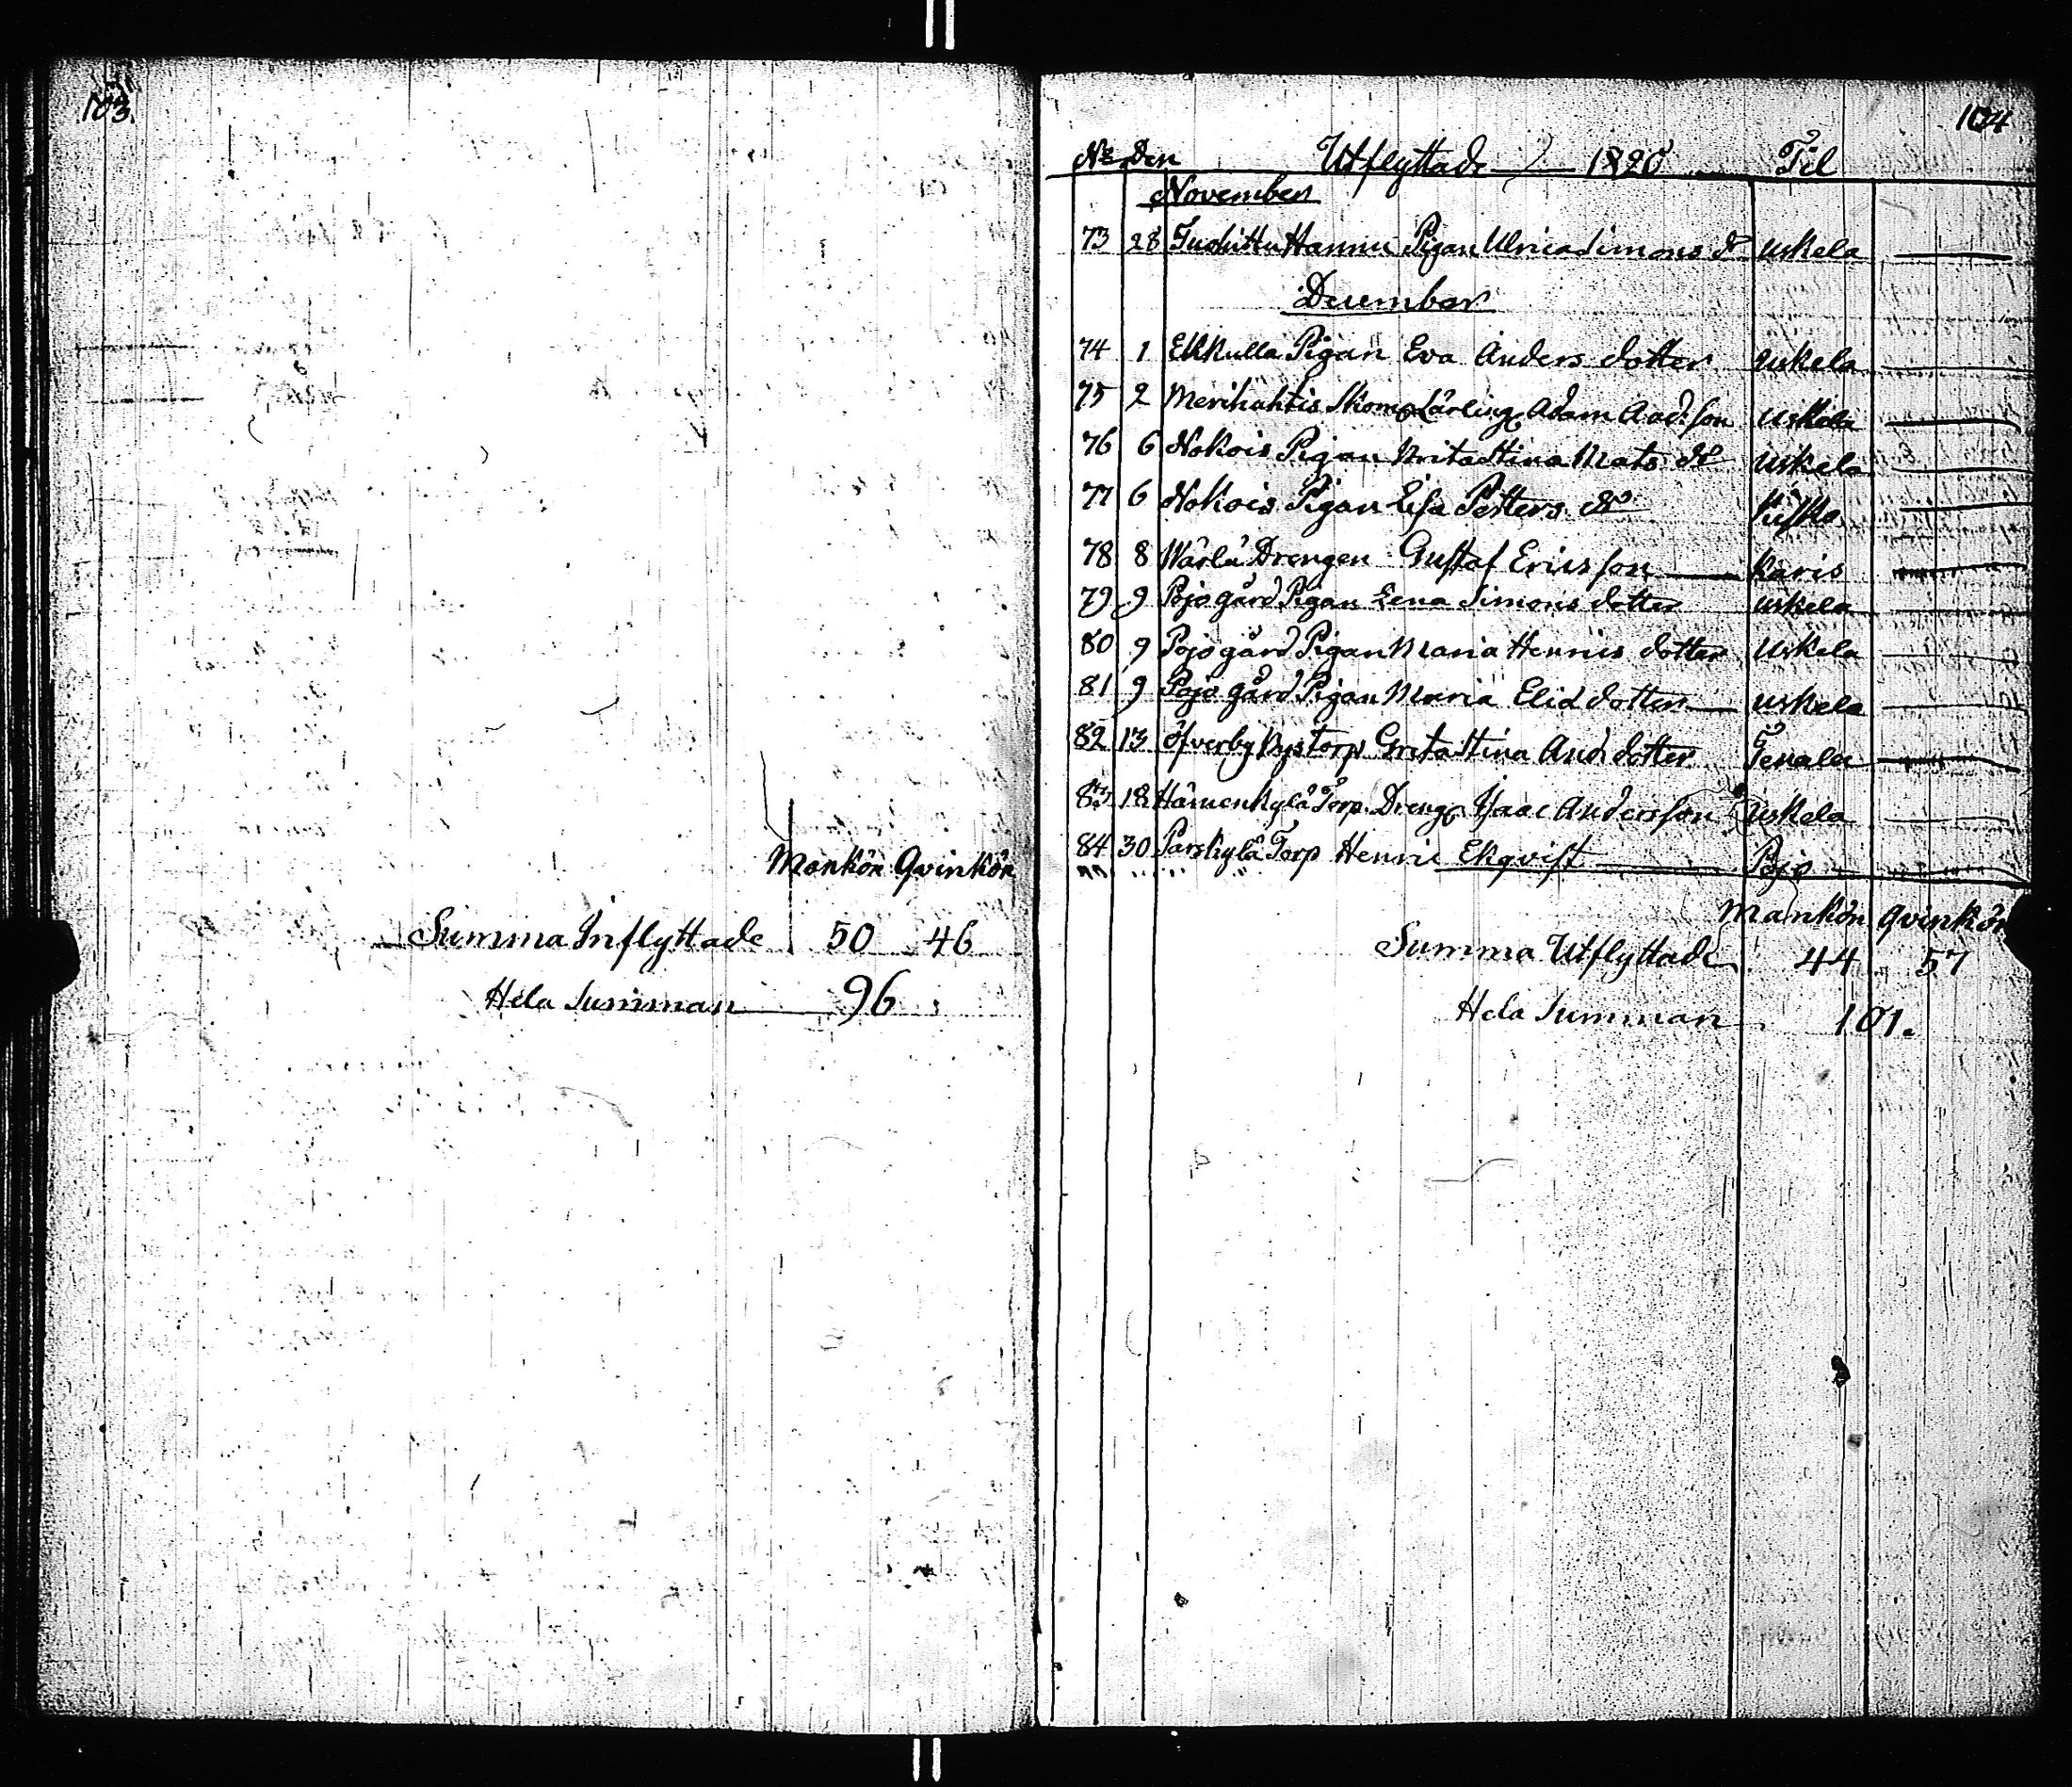 103.
Mankön Qvinkön
Summa Inflyttade 50 46
Hela Summan 96
104
No Den Utflyttade 1820 Til
November
73 28 Pigan Ulrica Simons dr Uskela
December
74 1 Ekkulla Pigan Eva Anders dotter Uskela
75 2 Merihahtis Skom. Lärling Adam And:son Uskela
76 6 Nokois Pigan Brita Stina Mats dr Uskela
77 6 Nokois Pigan Lisa Petters dr Kisko
78 8 Wärlä Drengen Gustaf Ericsson Karis
79 9 Pojogård Pigan Lena Simons dotter Uskela
80 9 Pojogård Pigan Maria Henrics dotter Uskela
81 9 Pojogård Pigan Maria Elid dotter Uskela
82 13 Öfverby Bys torp Greta Stina And. dotter Tenala
83 18 Hämenkylä Torp. Dreng. Isaac Andersson Uskela
84 30 Parskylä Torp Henric Ekqvist Pojo
Mankön Qvinkön
Summa Utflyttade 44 57
Hela Summan 101.